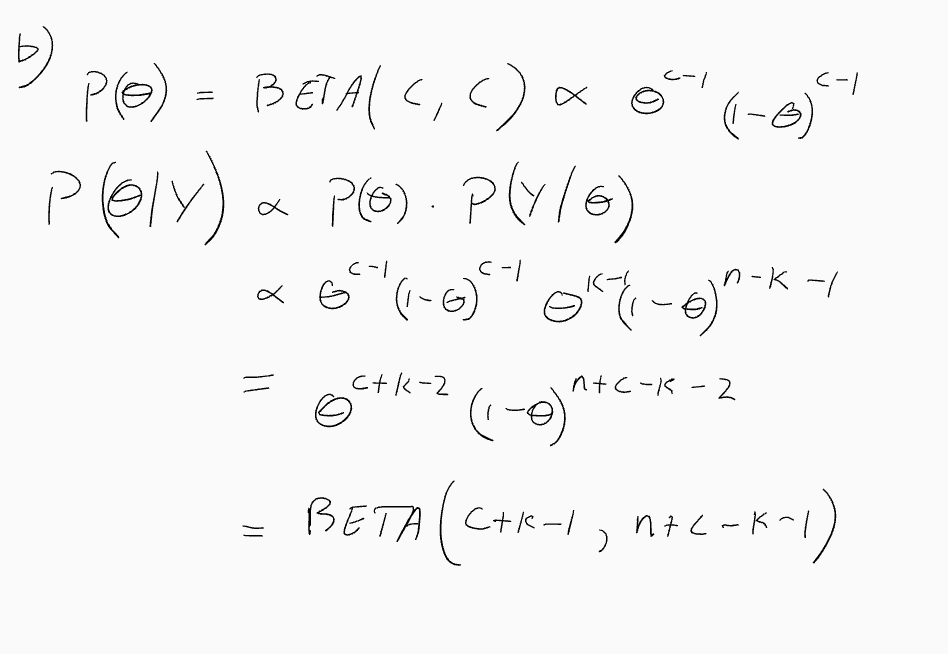 b)
P(θ) = BETA(c, c) ∝ θ^{c-1} (1-θ)^{c-1}
P(θ|Y) ∝ P(θ) · P(Y/θ)
∝ θ^{c-1} (1-θ)^{c-1} θ^{k-1} (1-θ)^{n-k-1}
= θ^{c+k-2} (1-θ)^{n+c-k-2}
= BETA(c+k-1, n+c-k-1)